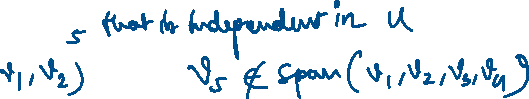 5 that is independent in U
v₁, v₂) v₅ ∉ span (v₁, v₂, v₃, v₄)